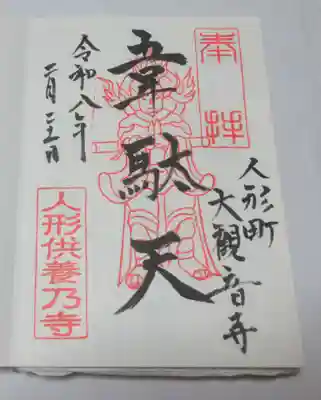 奉拝
人形町
大観音寺
韋駄天
令和八年
二月二十二日
人形供養乃寺